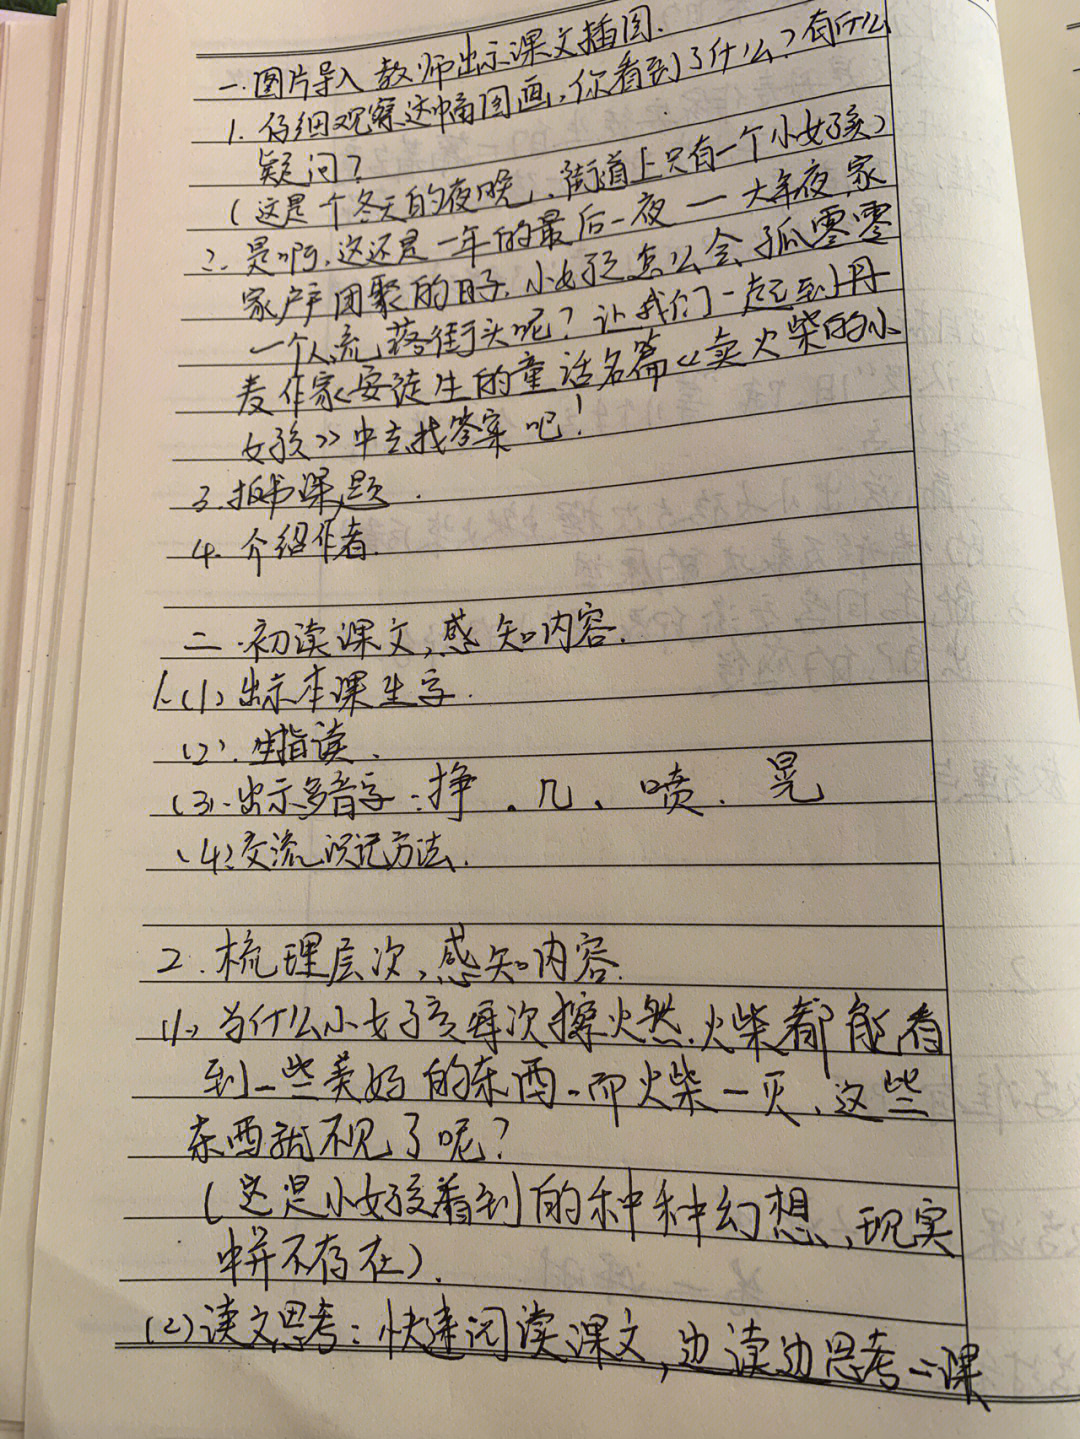 一.图片导入 教师出示课文插图.
1. 仔细观察这幅图画,你看到了什么?有什么
疑问?
(这是个冬天的夜晚,街道上只有一个小女孩)
2. 是啊,这还是一年的最后一夜一大年夜,家
家户户团聚的日子,小女孩怎么会孤零零
一个人流落街头呢?让我们一起到丹
麦作家安徒生的童话名篇《卖火柴的小
女孩》中去找答案吧!
3. 板书课题.
4. 介绍作者.
二.初读课文,感知内容.
1.(1)出示本课生字.
(2).生指读.
(3).出示多音字:挣.几、喷.晃
(4)交流识记方法.
2.梳理层次,感知内容.
(1)为什么小女孩每次擦燃火柴都能看
到一些美好的东西.而火柴一灭,这些
东西就不见了呢?
(这是小女孩看到的种种幻想,现实
中并不存在).
(2)读文思考:快速阅读课文,边读边思考:课